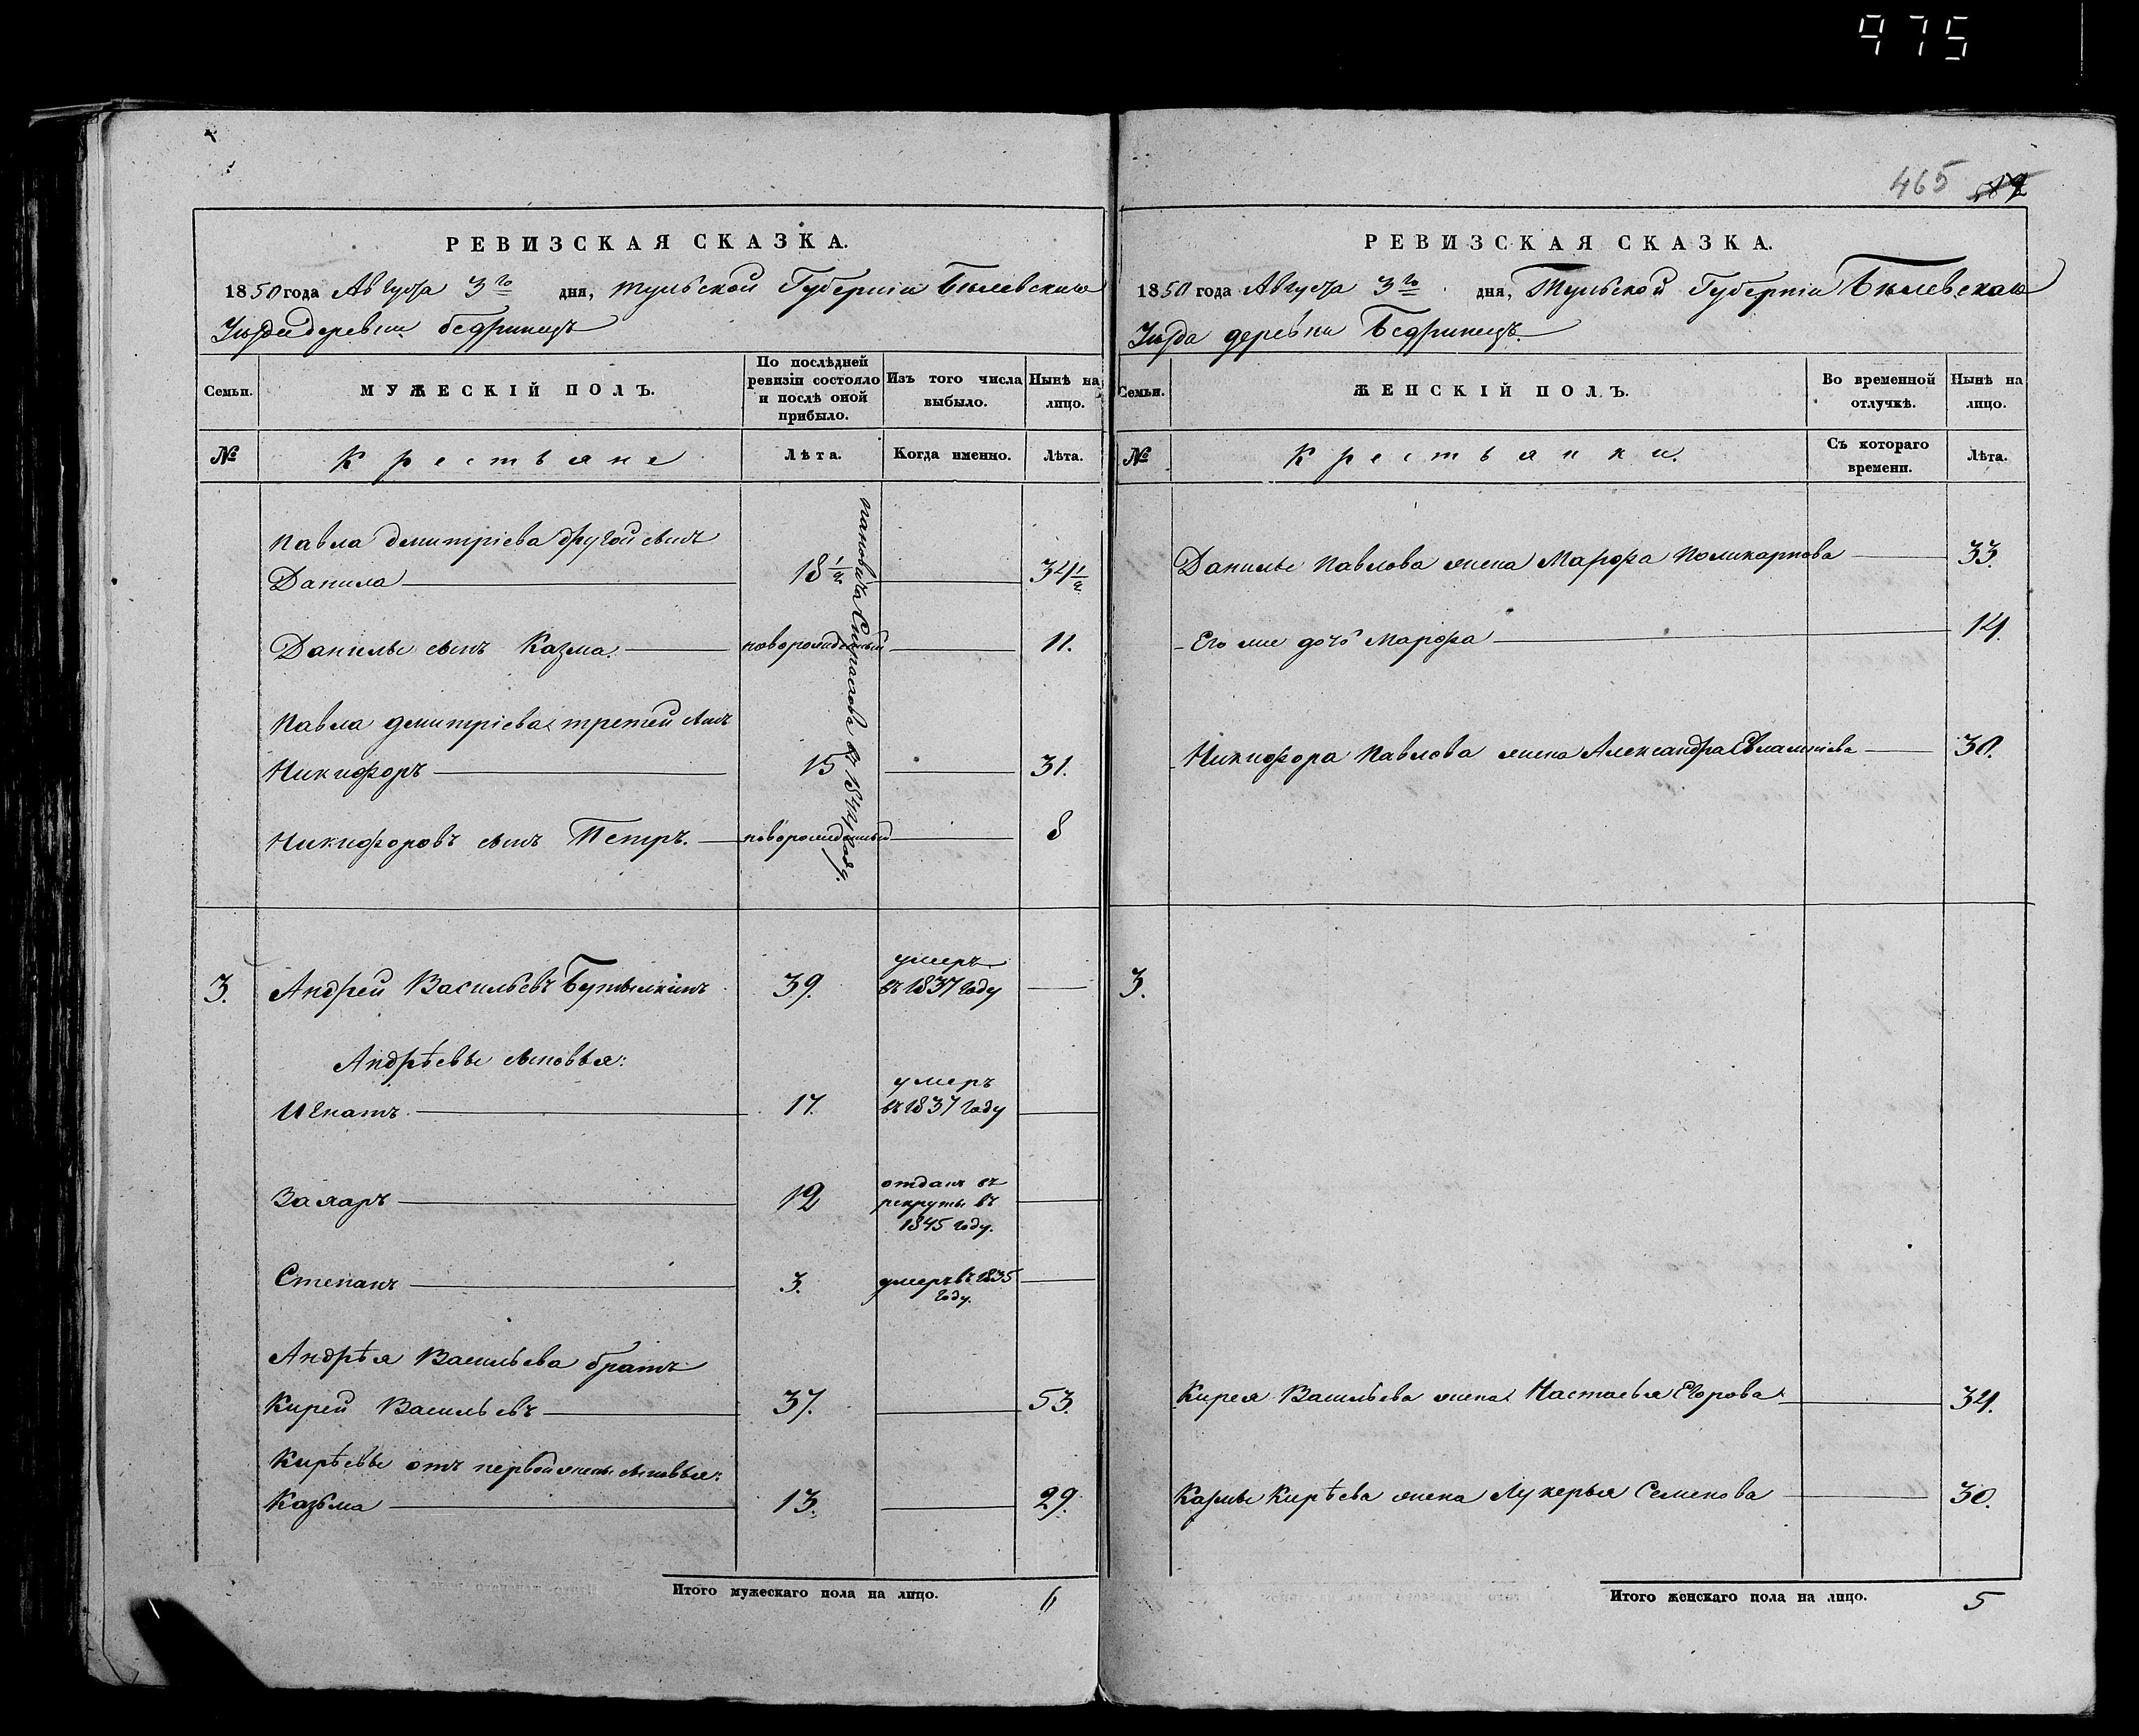 975
465
РЕВИЗСКАЯ СКАЗКА.
1850 года Августа 3го дня, Тульской Губернiи Бѣлевскаго
Уѣзда деревни Бедринецъ
Семьи.
МУЖЕСКІЙ ПОЛЪ.
По послѣдней ревизіи состояло и послѣ оной прибыло.
Изъ того числа выбыло.
Нынѣ на лицо.
№
Крестьяне
Лѣта.
Когда именно.
Лѣта.
Павла Дмитріева другой сынъ
Данила 18½ 34½
Данилы сынъ Казма. новорожденный 11.
Павла Дмитріева третей сынъ
Никифоръ 15 31.
Никифоровъ сынъ Петръ. новорожденный 8
3. Андрей Васильевъ Бутылкинъ 39. умеръ въ 1837 году
Андрѣевы сыновья:
Игнатъ. 17. умеръ въ 1837 году
Захаръ 12 отданъ въ рекруты въ 1845 году.
Степанъ 3. умеръ въ 1835 году.
Андрѣя Васильева братъ
Кирей Васильевъ 37. 53.
Кирѣевы отъ первой жены сыновья:
Казьма 13. 29.
Итого мужескаго пола на лицо. 6
РЕВИЗСКАЯ СКАЗКА.
1850 года Августа 3го дня, Тульской Губерніи Бѣлевскаго
Уѣзда деревни Бедринецъ.
Семьи.
ЖЕНСКІЙ ПОЛЪ.
Во временной отлучкѣ.
Нынѣ на лицо.
№
Крестьянки.
Съ котораго времени.
Лѣта.
Данилы Павлова жена Марфа Поликарпова 33.
Его же дочь Марфа 14.
Никифора Павлова жена Александра Евлампіева 30.
3.
Кирея Васильева жена Настасья Егорова 34.
Казмы Кирѣева жена Лукерья Семенова 30.
Итого женскаго пола на лицо. 5